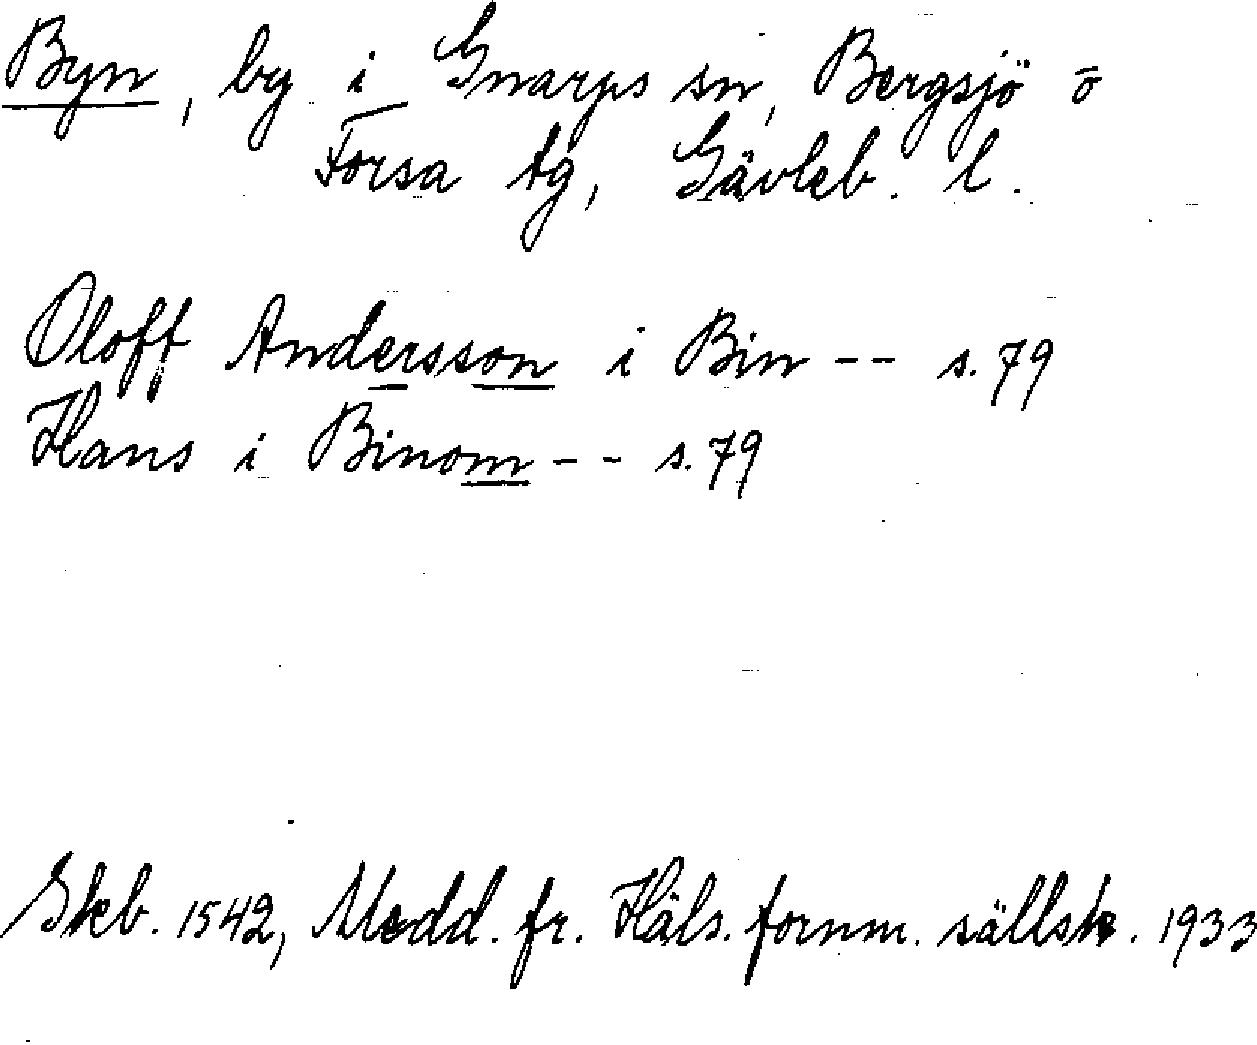 Byn, by i Gnarps sn, Bergsjö o
Forsa tg, Gävleb. l.
Oloff Andersson i Bin -- s. 79
Hans i Binom -- s. 79
Skb. 1542, Medd. fr. Häls. fornm. sällsk. 1933